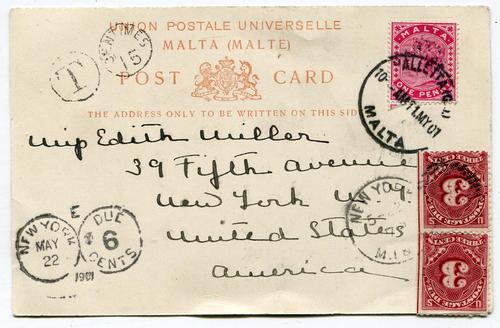 UNION POSTALE UNIVERSELLE
MALTA (MALTE)
POST CARD
THE ADDRESS ONLY TO BE WRITTEN ON THIS SIDE
T
CENTIMES
15
MALTA
ONE PENNY
VALLETTA
MY 7 01
MALTA
Miss Edith Miller
39 Fifth Avenue
New York
United States
America
NEW YORK
MAY
22
1901
DUE
6
CENTS
NEW YORK
THREE CENTS
3
POSTAGE DUE
THREE CENTS
3
POSTAGE DUE